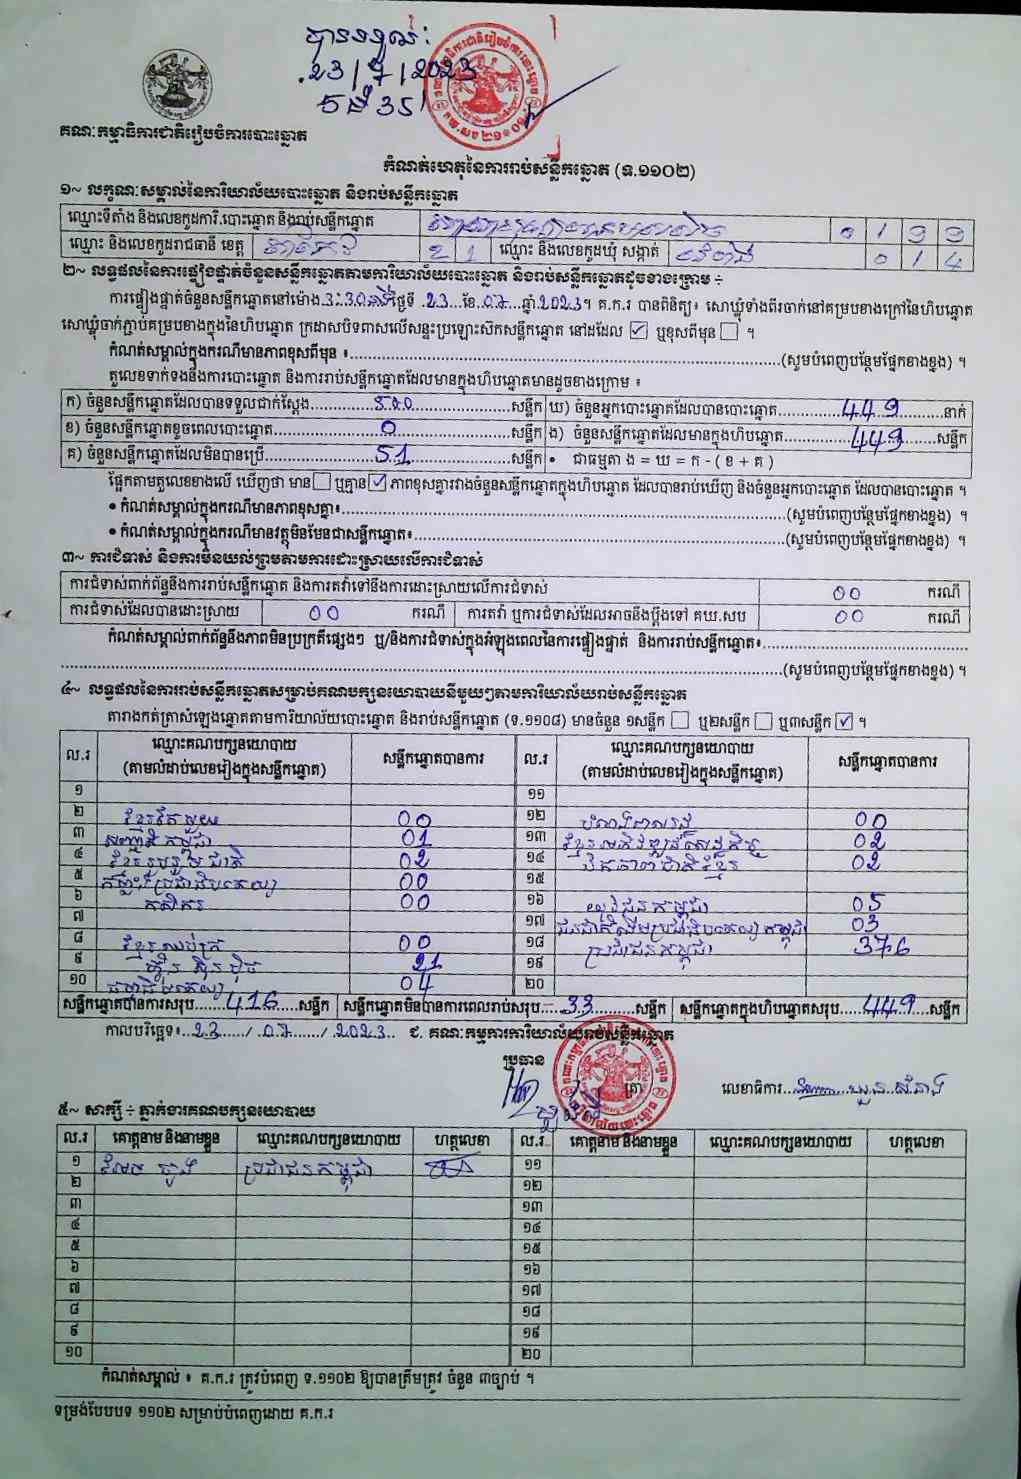 បានទទួល:
23/7/2023
គណៈកម្មាធិការជាតិរៀបចំការបោះឆ្នោត
កំណត់ហេតុនៃការរាប់សន្លឹកឆ្នោត (ទ.១១០២)
១~ លក្ខណៈសម្គាល់នៃការិយាល័យបោះឆ្នោត និងរាប់សន្លឹកឆ្នោត
ឈ្មោះទីតាំង និងលេខកូដការិ.បោះឆ្នោត និងរាប់សន្លឹកឆ្នោត 0 1 9 9
ឈ្មោះ និងលេខកូដរាជធានី ខេត្ត តាកែវ 2 1 ឈ្មោះ និងលេខកូដឃុំ សង្កាត់ 0 1 4
២~ លទ្ធផលនៃការផ្ទៀងផ្ទាត់ចំនួនសន្លឹកឆ្នោតតាមការិយាល័យបោះឆ្នោត និងរាប់សន្លឹកឆ្នោតដូចខាងក្រោម ÷
ការផ្ទៀងផ្ទាត់ចំនួនសន្លឹកឆ្នោតនៅម៉ោង 3:30 នាទី ថ្ងៃទី 23 ខែ 07 ឆ្នាំ 2023។ គ.ក.រ បានពិនិត្យ៖ សោឃ្លុំទាំងពីរចាក់នៅគម្របខាងក្រៅនៃហិបឆ្នោត
សោឃ្លុំចាក់ភ្ជាប់គម្របខាងក្នុងនៃហិបឆ្នោត ក្រដាសបិទពាសលើសន្ទះប្រឡោះស៊កសន្លឹកឆ្នោត នៅដដែល ☑ ឬខុសពីមុន ☐ ។
កំណត់សម្គាល់ក្នុងករណីមានភាពខុសពីមុន ៖ (សូមបំពេញបន្ថែមផ្នែកខាងខ្នង) ។
តួលេខទាក់ទងនឹងការបោះឆ្នោត និងការរាប់សន្លឹកឆ្នោតដែលមានក្នុងហិបឆ្នោតមានដូចខាងក្រោម ៖
ក) ចំនួនសន្លឹកឆ្នោតដែលបានទទួលជាក់ស្តែង 500 សន្លឹក ឃ) ចំនួនអ្នកបោះឆ្នោតដែលបានបោះឆ្នោត 449 នាក់
ខ) ចំនួនសន្លឹកឆ្នោតខូចពេលបោះឆ្នោត 0 សន្លឹក ង) ចំនួនសន្លឹកឆ្នោតដែលមានក្នុងហិបឆ្នោត 449 សន្លឹក
គ) ចំនួនសន្លឹកឆ្នោតដែលមិនបានប្រើ 51 សន្លឹក • ជាធម្មតា ង = ឃ = ក - ( ខ + គ )
ផ្អែកតាមតួលេខខាងលើ ឃើញថា មាន ☐ ឬគ្មាន ☑ ភាពខុសគ្នារវាងចំនួនសន្លឹកឆ្នោតក្នុងហិបឆ្នោត ដែលបានរាប់ឃើញ និងចំនួនអ្នកបោះឆ្នោត ដែលបានបោះឆ្នោត ។
• កំណត់សម្គាល់ក្នុងករណីមានភាពខុសគ្នា៖ (សូមបំពេញបន្ថែមផ្នែកខាងខ្នង) ។
• កំណត់សម្គាល់ក្នុងករណីមានវត្ថុមិនមែនជាសន្លឹកឆ្នោត៖ (សូមបំពេញបន្ថែមផ្នែកខាងខ្នង) ។
៣~ ការជំទាស់ និងការមិនយល់ព្រមតាមការដោះស្រាយលើការជំទាស់
ការជំទាស់ពាក់ព័ន្ធនឹងការរាប់សន្លឹកឆ្នោត និងការតវ៉ាទៅនឹងការដោះស្រាយលើការជំទាស់ 00 ករណី
ការជំទាស់ដែលបានដោះស្រាយ 00 ករណី ការតវ៉ា ឬការជំទាស់ដែលអាចនឹងប្តឹងទៅ គឃ.សប 00 ករណី
កំណត់សម្គាល់ពាក់ព័ន្ធនឹងភាពមិនប្រក្រតីផ្សេងៗ ឬ/និងការជំទាស់ក្នុងអំឡុងពេលនៃការផ្ទៀងផ្ទាត់ និងការរាប់សន្លឹកឆ្នោត៖
(សូមបំពេញបន្ថែមផ្នែកខាងខ្នង) ។
៤~ លទ្ធផលនៃការរាប់សន្លឹកឆ្នោតសម្រាប់គណបក្សនយោបាយនីមួយៗតាមការិយាល័យរាប់សន្លឹកឆ្នោត
តារាងកត់ត្រាសំឡេងឆ្នោតតាមការិយាល័យបោះឆ្នោត និងរាប់សន្លឹកឆ្នោត (ទ.១១០៨) មានចំនួន ១សន្លឹក ☐ ឬ២សន្លឹក ☐ ឬ៣សន្លឹក ☑ ។
ល.រ ឈ្មោះគណបក្សនយោបាយ (តាមលំដាប់លេខរៀងក្នុងសន្លឹកឆ្នោត) សន្លឹកឆ្នោតបានការ ល.រ ឈ្មោះគណបក្សនយោបាយ (តាមលំដាប់លេខរៀងក្នុងសន្លឹកឆ្នោត) សន្លឹកឆ្នោតបានការ
១ ១១
២ ខ្មែរតែមួយ 00 ១២ 00
៣ សញ្ជាតិកម្ពុជា 01 ១៣ ខ្មែរអភិវឌ្ឍន៍សេដ្ឋកិច្ច 02
៤ ខ្មែររួបរួមជាតិ 02 ១៤ ឯកភាពជាតិខ្មែរ 02
៥ កម្លាំងប្រជាធិបតេយ្យ 00 ១៥
៦ កសិករ 00 ១៦ យុវជនកម្ពុជា 05
៧ ១៧ ជនជាតិដើមប្រជាធិបតេយ្យកម្ពុជា 03
៨ ខ្មែរឈប់ក្រ 00 ១៨ ប្រជាជនកម្ពុជា 376
៩ ហ្វ៊ុនស៊ិនប៉ិច 21 ១៩
១០ 04 ២០
សន្លឹកឆ្នោតបានការសរុប 416 សន្លឹក សន្លឹកឆ្នោតមិនបានការពេលរាប់សរុប 33 សន្លឹក សន្លឹកឆ្នោតក្នុងហិបឆ្នោតសរុប 449 សន្លឹក
កាលបរិច្ឆេទ៖ 23/07/2023 ជ. គណៈកម្មការការិយាល័យរាប់សន្លឹកឆ្នោត
ប្រធាន
ត្រា លេខាធិការ
៥~ សាក្សី ÷ ភ្នាក់ងារគណបក្សនយោបាយ
ល.រ គោត្តនាម និងនាមខ្លួន ឈ្មោះគណបក្សនយោបាយ ហត្ថលេខា ល.រ គោត្តនាម និងនាមខ្លួន ឈ្មោះគណបក្សនយោបាយ ហត្ថលេខា
១ ប្រជាជនកម្ពុជា ១១
២ ១២
៣ ១៣
៤ ១៤
៥ ១៥
៦ ១៦
៧ ១៧
៨ ១៨
៩ ១៩
១០ ២០
កំណត់សម្គាល់ ៖ គ.ក.រ ត្រូវបំពេញ ទ.១១០២ ឱ្យបានត្រឹមត្រូវ ចំនួន ៣ច្បាប់ ។
ទម្រង់បែបបទ ១១០២ សម្រាប់បំពេញដោយ គ.ក.រ